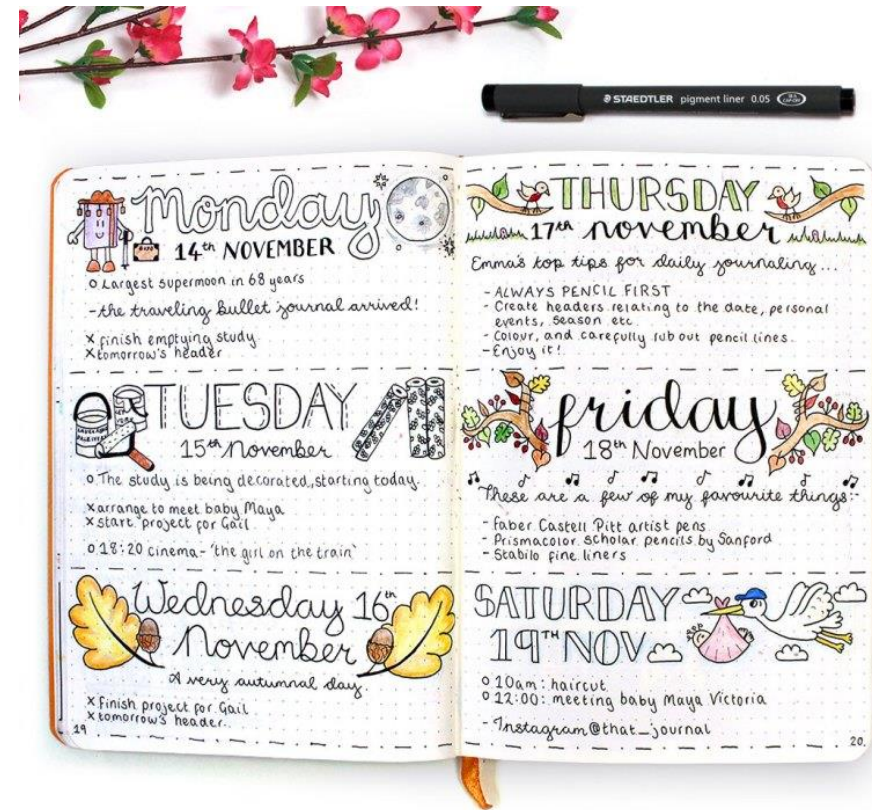 STAEDTLER pigment liner 0.05
Monday
14th NOVEMBER
o Largest supermoon in 68 years
- the traveling bullet journal arrived!
x finish emptying study
x tomorrow's header
TUESDAY
15th November
o The study is being decorated, starting today.
x arrange to meet baby Maya
x start project for Gail
o 18:20 cinema - 'the girl on the train'
Wednesday 16th
November
A very autumnal day.
x finish project for Gail
x tomorrow's header.
19
THURSDAY
17th november
Emma's top tips for daily journaling...
- ALWAYS PENCIL FIRST
- Create headers relating to the date, personal
events, season etc
- Colour, and carefully rub out pencil lines.
- Enjoy it!
friday
18th November
These are a few of my favourite things:-
- Faber Castell Pitt artist pens
- Prismacolor scholar pencils by Sanford
- Stabilo fine liners
SATURDAY
19TH NOV
o 10am: haircut
o 12:00: meeting baby Maya Victoria
- Instagram @that_journal
20.